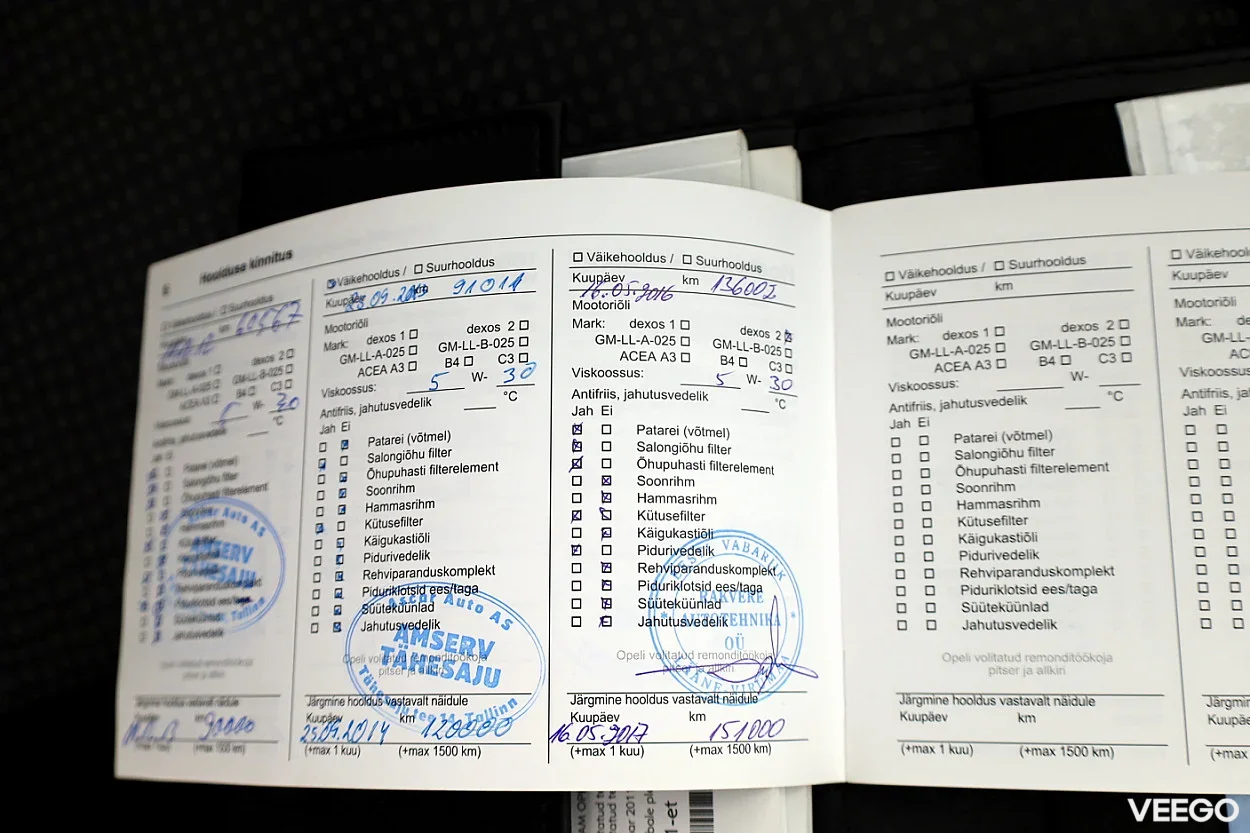 Hoolduse kinnitus
Väikehooldus / Suurhooldus
km 60567
dexos 2
GM-LL-A-025 GM-LL-B-025
ACEA A3 B4 C3
5 W- 30
°C
Patarei (võtmel)
Salongiõhu filter
Õhupuhasti filterelement
Ascar Auto AS
AMSERV
TÄHESAJU
Tallinn
Jahutusvedelik
Opeli volitatud remonditöökoja
pitser ja allkiri
Järgmine hooldus vastavalt näidule
90000
(+max 1500 km)
Väikehooldus / Suurhooldus
Kuupäev km 91011
Mootoriõli
Mark: dexos 1 dexos 2
GM-LL-A-025 GM-LL-B-025
ACEA A3 B4 C3
Viskoossus: 5 W- 30
Antifriis, jahutusvedelik °C
Jah Ei
Patarei (võtmel)
Salongiõhu filter
Õhupuhasti filterelement
Soonrihm
Hammasrihm
Kütusefilter
Käigukastiõli
Pidurivedelik
Rehviparanduskomplekt
Piduriklotsid ees/taga
Süüteküünlad
Jahutusvedelik
Ascar Auto AS
AMSERV
TÄHESAJU
Tähesaju tee 14, Tallinn
Opeli volitatud remonditöökoja
pitser ja allkiri
Järgmine hooldus vastavalt näidule
Kuupäev km
25.09.2014 120000
(+max 1 kuu) (+max 1500 km)
Väikehooldus / Suurhooldus
Kuupäev km 136002
16.05.2016
Mootoriõli
Mark: dexos 1 dexos 2
GM-LL-A-025 GM-LL-B-025
ACEA A3 B4 C3
Viskoossus: 5 W- 30
Antifriis, jahutusvedelik °C
Jah Ei
Patarei (võtmel)
Salongiõhu filter
Õhupuhasti filterelement
Soonrihm
Hammasrihm
Kütusefilter
Käigukastiõli
Pidurivedelik
Rehviparanduskomplekt
Piduriklotsid ees/taga
Süüteküünlad
Jahutusvedelik
EESTI VABARIIK
RAKVERE
AUTOTEHNIKA
OÜ
LÄÄNE-VIRUMAA
Opeli volitatud remonditöökoja
pitser ja allkiri
Järgmine hooldus vastavalt näidule
Kuupäev km
16.05.2017 151000
(+max 1 kuu) (+max 1500 km)
Väikehooldus / Suurhooldus
Kuupäev km
Mootoriõli
Mark: dexos 1 dexos 2
GM-LL-A-025 GM-LL-B-025
ACEA A3 B4 C3
Viskoossus: W-
Antifriis, jahutusvedelik °C
Jah Ei
Patarei (võtmel)
Salongiõhu filter
Õhupuhasti filterelement
Soonrihm
Hammasrihm
Kütusefilter
Käigukastiõli
Pidurivedelik
Rehviparanduskomplekt
Piduriklotsid ees/taga
Süüteküünlad
Jahutusvedelik
Opeli volitatud remonditöökoja
pitser ja allkiri
Järgmine hooldus vastavalt näidule
Kuupäev km
(+max 1 kuu) (+max 1500 km)
Väikehooldus
Kuupäev
Mootoriõli
Mark:
GM-LL-
ACE
Viskoossus
Antifriis, ja
Jah Ei
Järgmine
Kuupäe
(+max
VEEGO